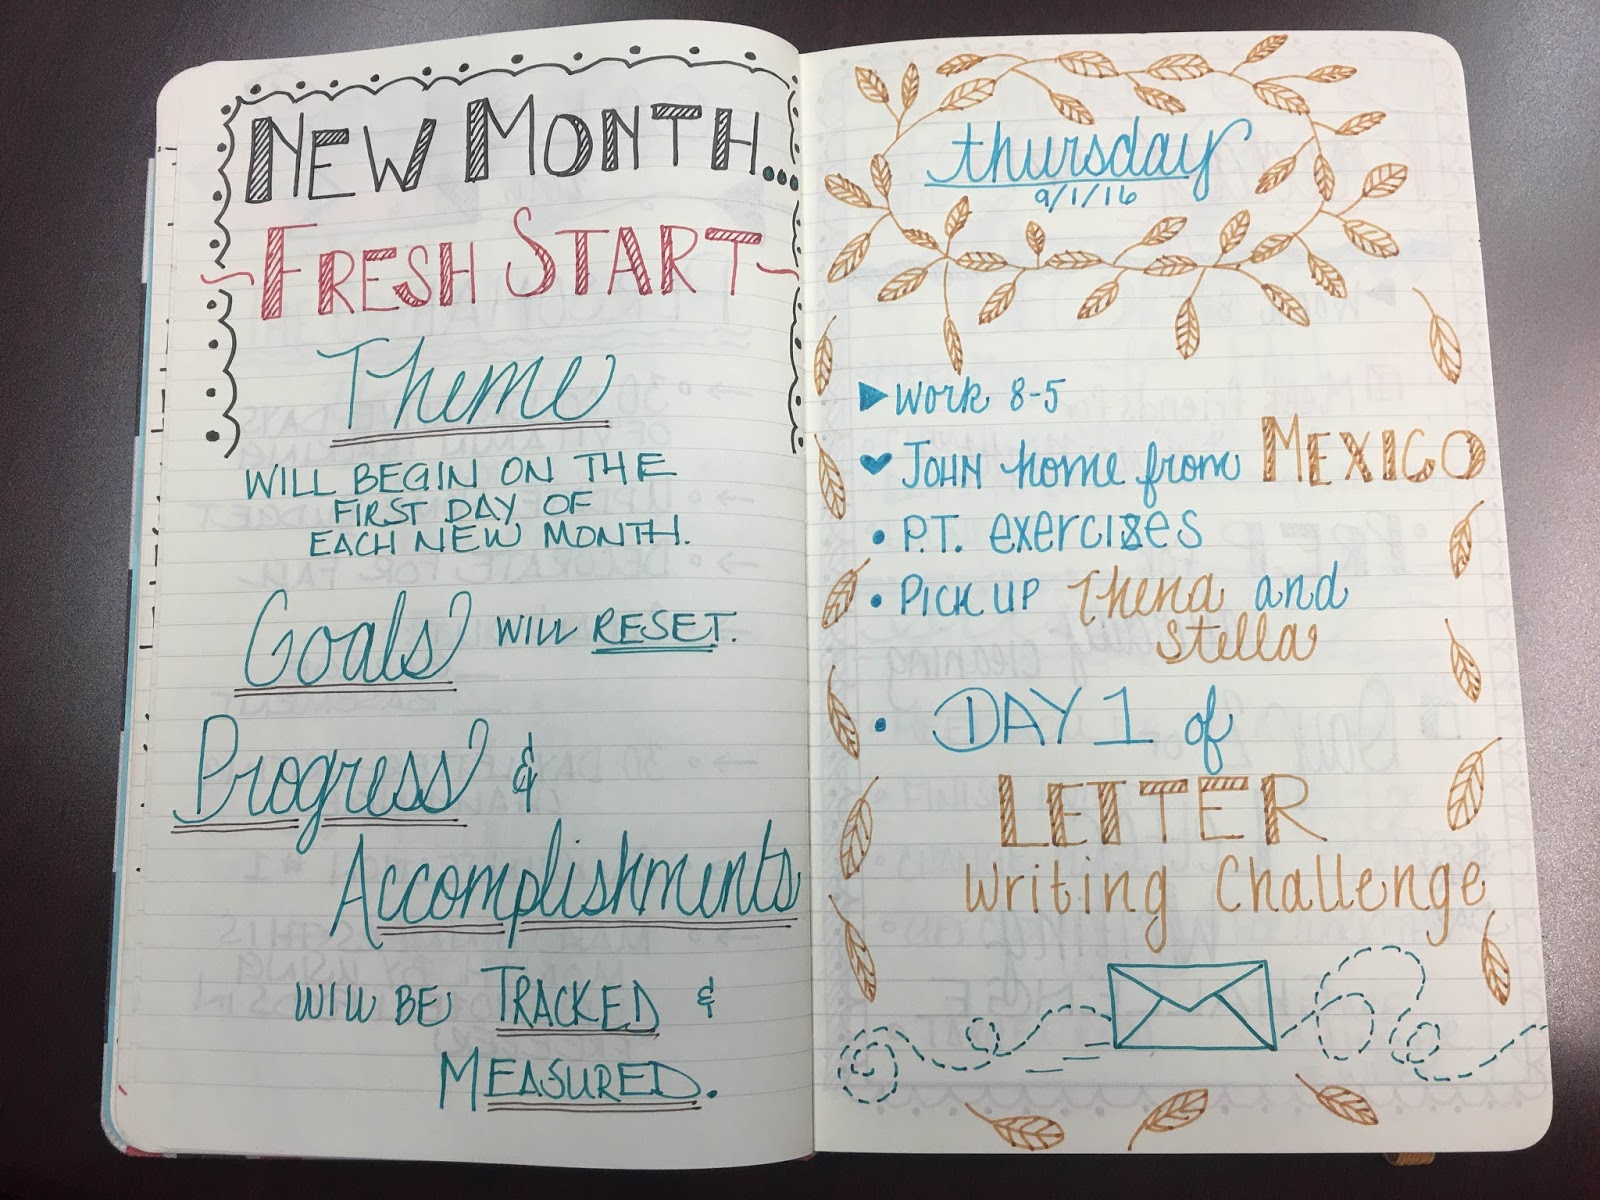 NEW MONTH...
FRESH START
Theme
WILL BEGIN ON THE
FIRST DAY OF
EACH NEW MONTH.
Goals WILL RESET.
Progress &
Accomplishments
WILL BE TRACKED &
MEASURED.
thursday
9/1/16
WORK 8-5
JOHN home from MEXICO
P.T. exercises
PICK UP Thena and
Stella
DAY 1 of
LETTER
Writing Challenge